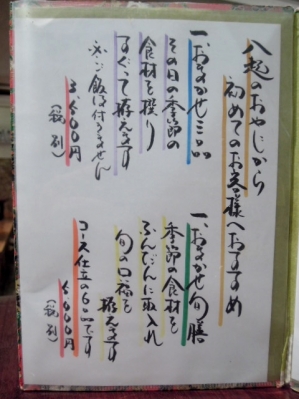 八起のおやじから
初めてのお客様へおすすめ
一、おまかせ三品
その日の季節の
食材を撰り
すぐって拵えます
※ご飯は付きません
3,500円
(税別)
一、おまかせ旬膳
季節の食材を
ふんだんに取入れ
旬の口福を
拵えます
コース仕立の6品です
6,000円
(税別)